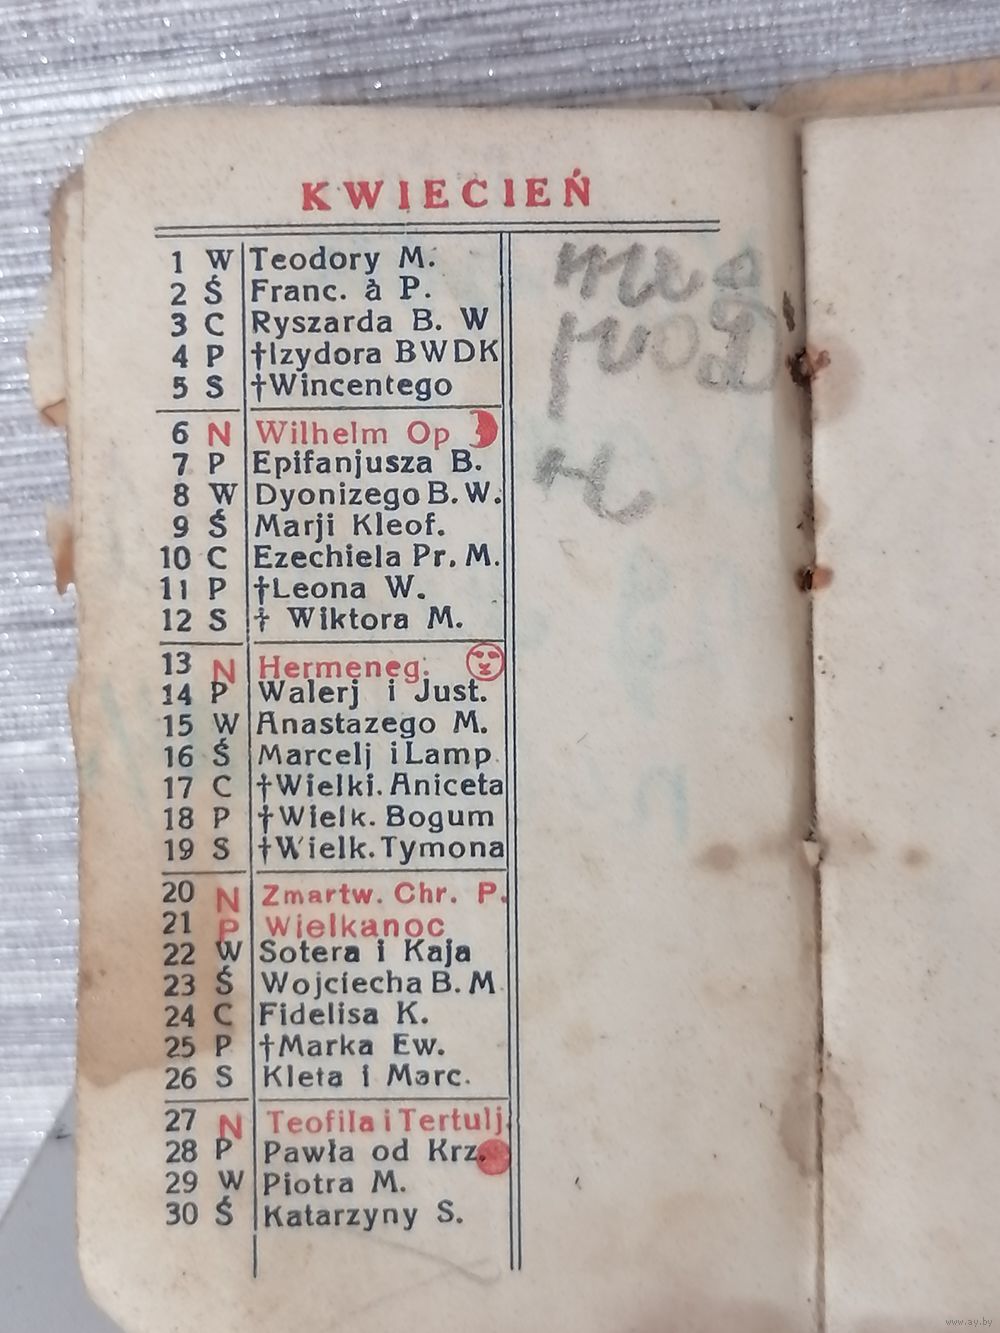 KWIECIEŃ
1 W Teodory M.
2 Ś Franc. à P.
3 C Ryszarda B. W
4 P †Izydora BWDK
5 S †Wincentego
6 N Wilhelm Op
7 P Epifanjusza B.
8 W Dyonizego B. W.
9 Ś Marji Kleof.
10 C Ezechiela Pr. M.
11 P †Leona W.
12 S † Wiktora M.
13 N Hermeneg.
14 P Walerj i Just.
15 W Anastazego M.
16 Ś Marcelj i Lamp.
17 C †Wielki. Aniceta
18 P †Wielk. Bogum
19 S †Wielk. Tymona
20 N Zmartw. Chr. P.
21 P Wielkanoc
22 W Sotera i Kaja
23 Ś Wojciecha B. M
24 C Fidelisa K.
25 P †Marka Ew.
26 S Kleta i Marc.
27 N Teofila i Tertulj.
28 P Pawła od Krz.
29 W Piotra M.
30 Ś Katarzyny S.
www.ay.by